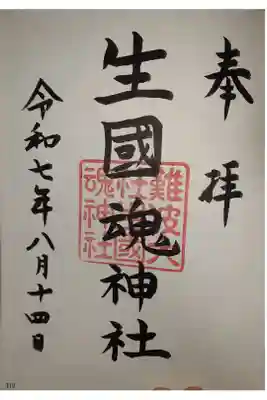 奉拝
生國魂神社
難波大
社生國
魂神社
令和七年八月十四日